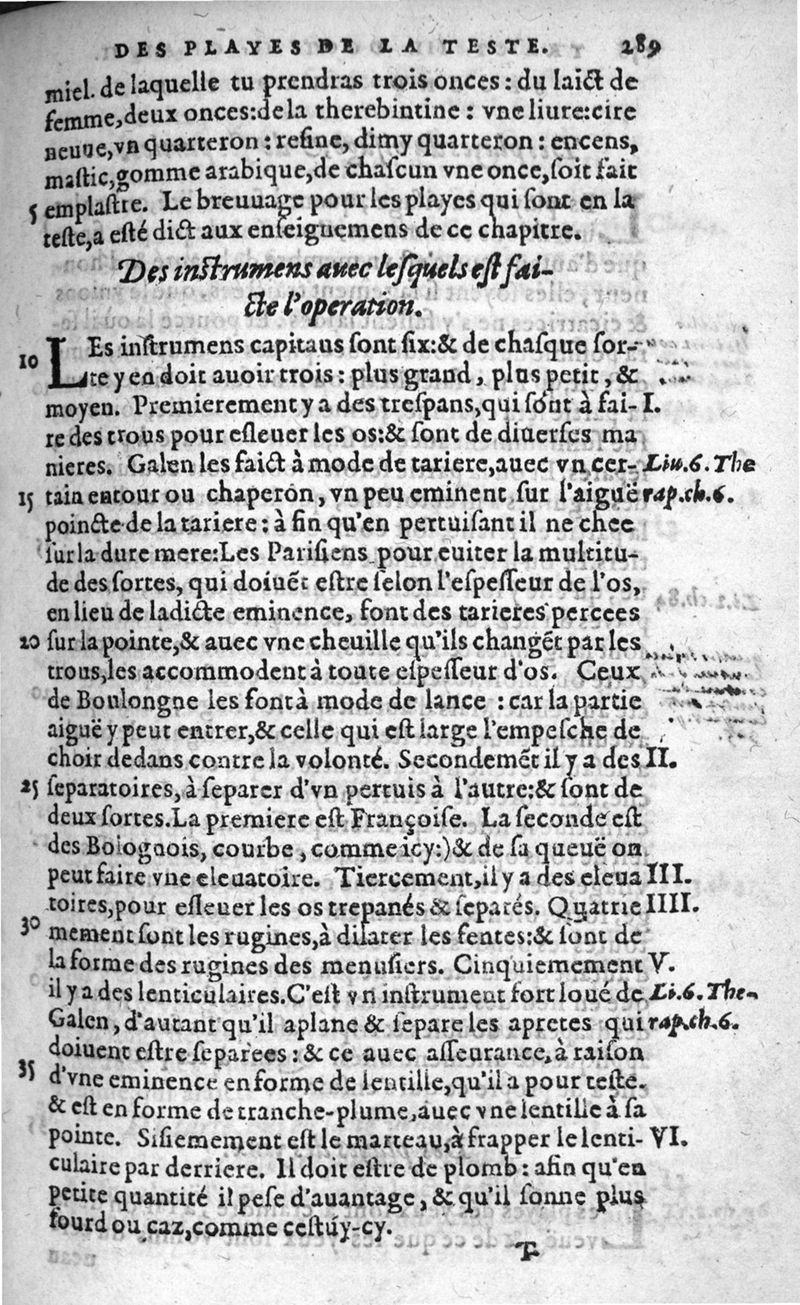 DES PLAYES DE LA TESTE. 289
miel. de laquelle tu prendras trois onces : du laict de
femme, deux onces: de la therebintine : vne liure: cire
neuue, vn quarteron : resine, dimy quarteron : encens,
mastic, gomme arabique, de chascun vne once, soit fait
5 emplastre. Le breuuage pour les playes qui sont en la
teste, a esté dict aux enseiguemens de ce chapitre.
Des instrumens auec lesquels est fai-
cte l'operation.
10 LEs instrumens capitaus sont six: & de chasque sor-
te y en doit auoir trois : plus grand, plus petit, &
moyen. Premierement y a des trespans, qui sont à fai- I.
re des trous pour esleuer les os: & sont de diuerses ma
nieres. Galen les faict à mode de tariere, auec vn cer- Liu. 6. The
15 tain entour ou chaperon, vn peu eminent sur l'aiguë rap. ch. 6.
poincte de la tariere : à fin qu'en pertuisant il ne chee
sur la dure mere: Les Parisiens pour euiter la multitu-
de des sortes, qui doiuēt estre selon l'espesseur de l'os,
en lieu de ladicte eminence, font des tarieres percees
20 sur la pointe, & auec vne cheuille qu'ils changēt par les
trous, les accommodent à toute espesseur d'os. Ceux
de Boulongne les font à mode de lance : car la partie
aiguë y peut entrer, & celle qui est large l'empesche de
choir dedans contre la volonté. Secondemēt il y a des II.
25 separatoires, à separer d'vn pertuis à l'autre: & sont de
deux sortes. La premiere est Françoise. La seconde est
des Bolognois, courbe, comme icy:)& de sa queuë on
peut faire vne eleuatoire. Tiercement, il y a des eleua III.
toires, pour esleuer les os trepanés & separés. Quatrie IIII.
30 mement sont les rugines, à dilater les fentes: & sont de
la forme des rugines des menusiers. Cinquiemement V.
il y a des lenticulaires. C'est vn instrument fort loué de Li. 6. The-
Galen, d'autant qu'il aplane & separe les apretes qui rap. ch. 6.
doiuent estre separees : & ce auec asseurance, à raison
35 d'vne eminence en forme de lentille, qu'il a pour teste.
& est en forme de tranche-plume, auec vne lentille à sa
pointe. Sisiemement est le marteau, à frapper le lenti- VI.
culaire par derriere. Il doit estre de plomb : afin qu'en
petite quantité il pese d'auantage, & qu'il sonne plus
sourd ou caz, comme cestuy-cy.
T